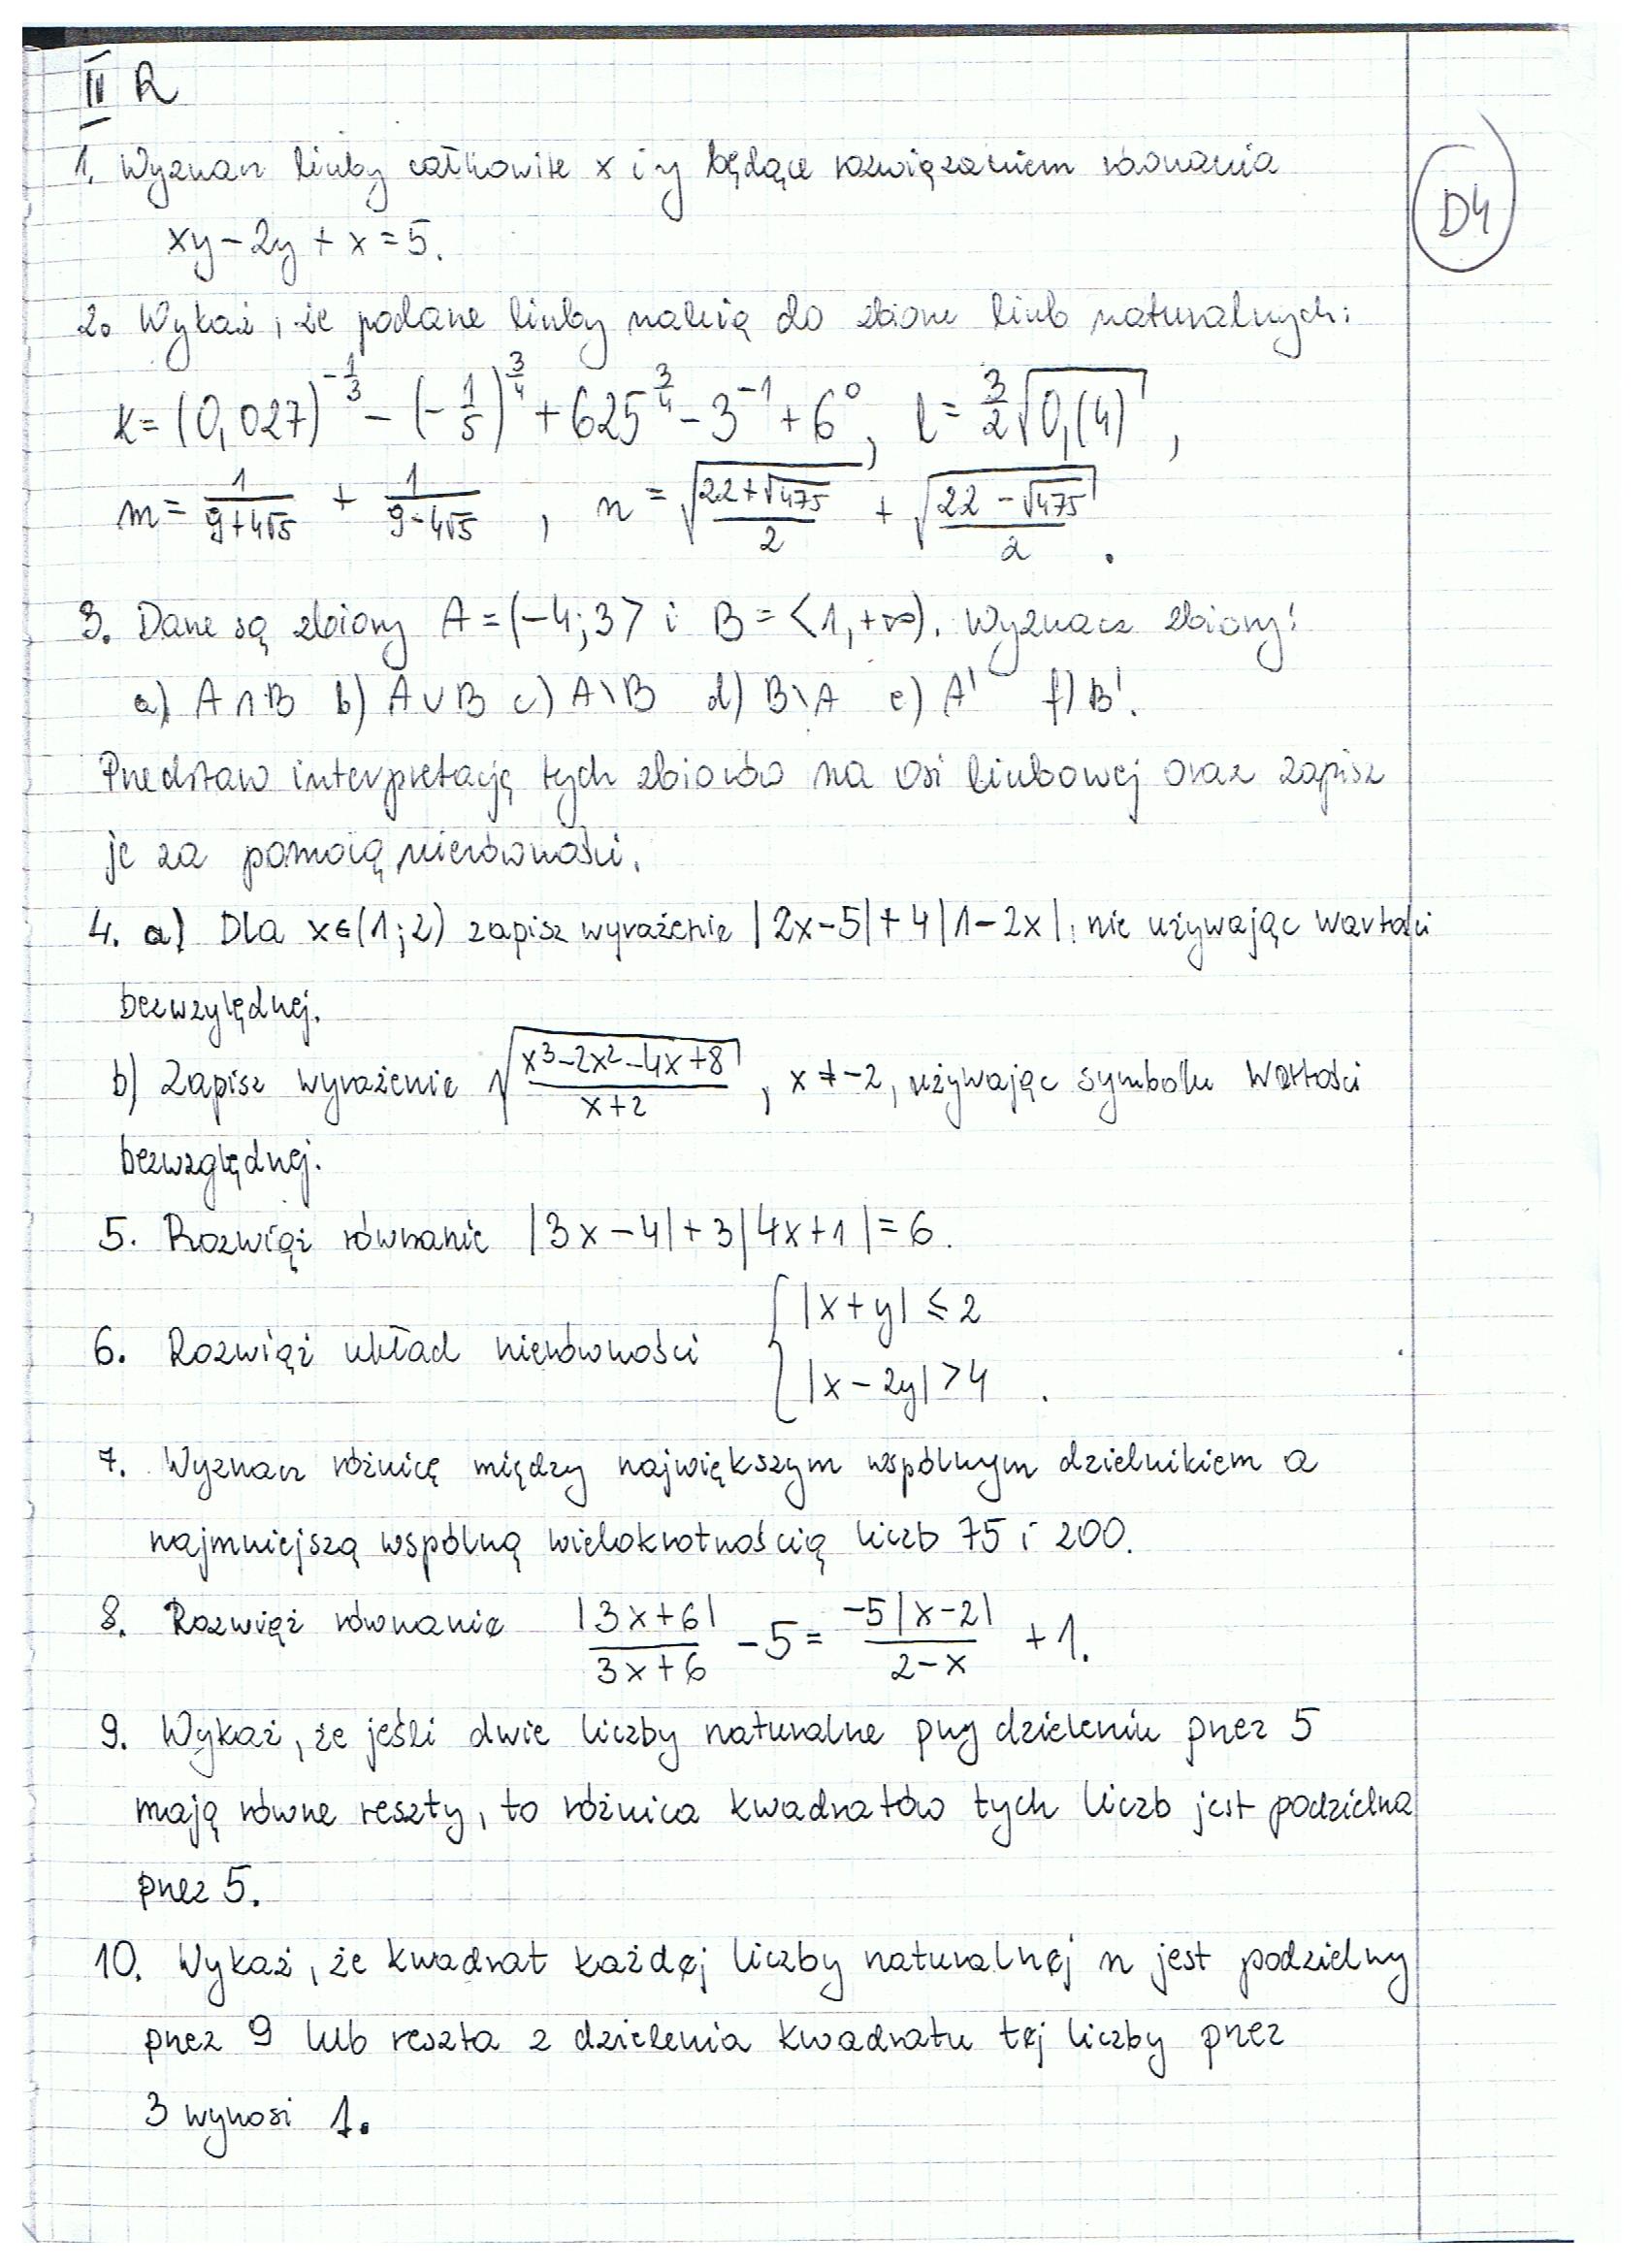 II R
D4
1. Wyznacz liczby całkowite x i y będące rozwiązaniem równania
xy - 2y + x = 5.
2. Wykaż, że podane liczby należą do zbioru liczb naturalnych:
k = (0,027)^{-1/3} - (-1/5)^{3/4} + 625^{3/4} - 3^{-1} + 6^0, l = 3/2 √(0,(4)),
m = 1/(9+4√5) + 1/(9-4√5), n = √((22+√475)/2) + √((22-√475)/2).
3. Dane są zbiory A = (-4; 3> i B = <1, +∞). Wyznacz zbiory:
a) A ∩ B b) A ∪ B c) A \ B d) B \ A e) A' f) B'.
Przedstaw interpretację tych zbiorów na osi liczbowej oraz zapisz
je za pomocą nierówności.
4. a) Dla x ∈ (1; 2) zapisz wyrażenie |2x-5| + 4|1-2x|, nie używając wartości
bezwzględnej.
b) Zapisz wyrażenie √((x³-2x²-4x+8)/(x+2)), x ≠ -2, używając symbolu wartości
bezwzględnej.
5. Rozwiąż równanie |3x-4| + 3|4x+1| = 6.
6. Rozwiąż układ nierówności { |x+y| ≤ 2
|x-2y| > 4 .
7. Wyznacz różnicę między największym wspólnym dzielnikiem a
najmniejszą wspólną wielokrotnością liczb 75 i 200.
8. Rozwiąż równanie |3x+6|/(3x+6) - 5 = -5|x-2|/(2-x) + 1.
9. Wykaż, że jeśli dwie liczby naturalne przy dzieleniu przez 5
mają równe reszty, to różnica kwadratów tych liczb jest podzielna
przez 5.
10. Wykaż, że kwadrat każdej liczby naturalnej n jest podzielny
przez 9 lub reszta z dzielenia kwadratu tej liczby przez
3 wynosi 1.